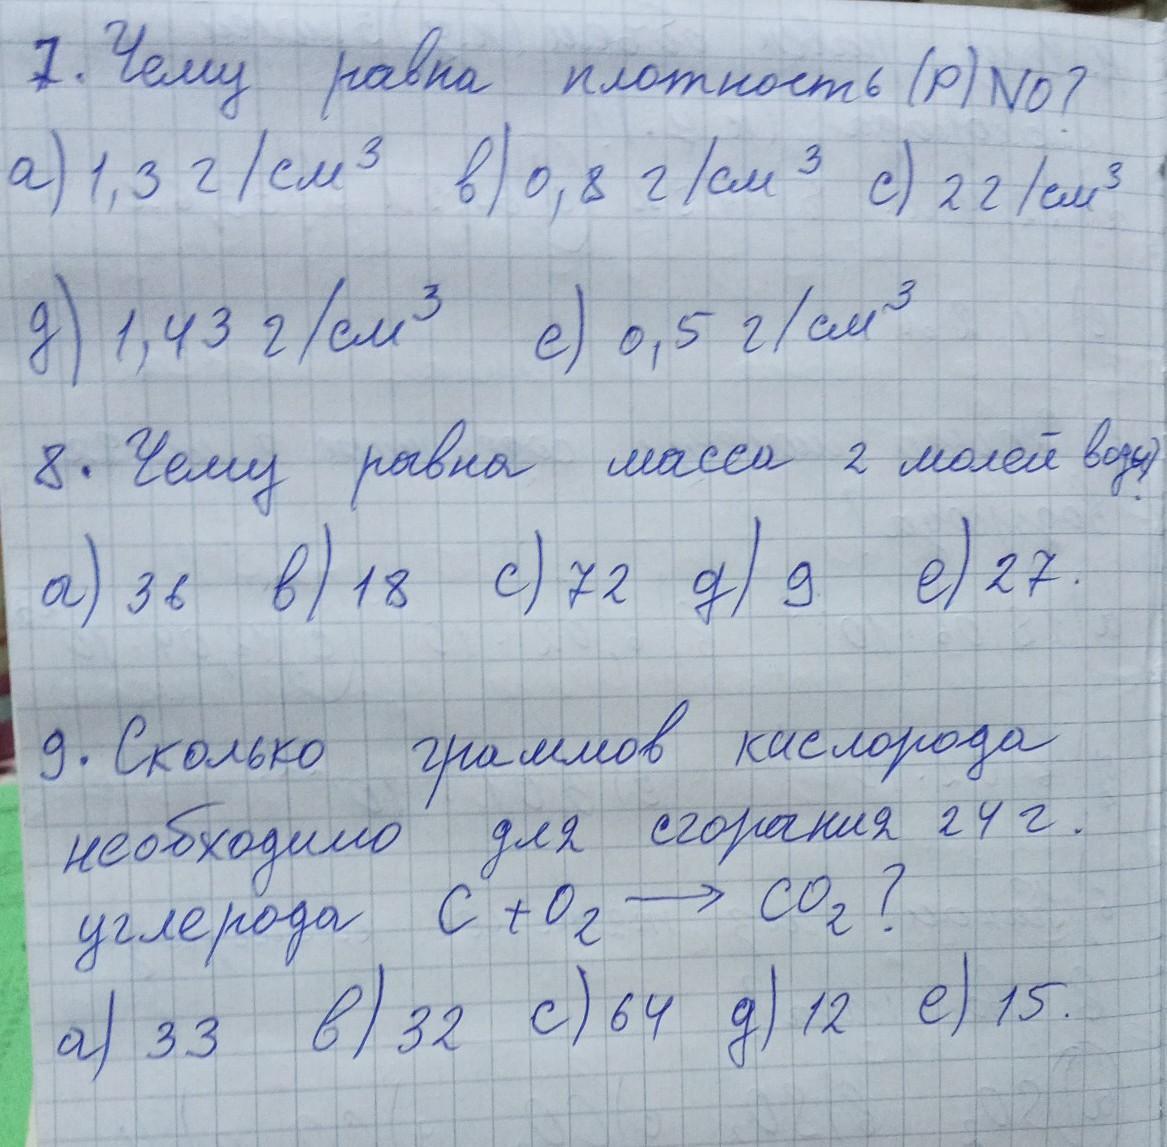 7. Чему равна плотность (р) NO?
а) 1,3 г/см³ в) 0,8 г/см³ с) 2 г/см³
д) 1,43 г/см³ е) 0,5 г/см³
8. Чему равна масса 2 молей воды?
а) 36 в) 18 с) 72 д) 9 е) 27.
9. Сколько граммов кислорода
необходимо для сгорания 24 г.
углерода C + O₂ → CO₂?
а) 33 в) 32 с) 64 д) 12 е) 15.